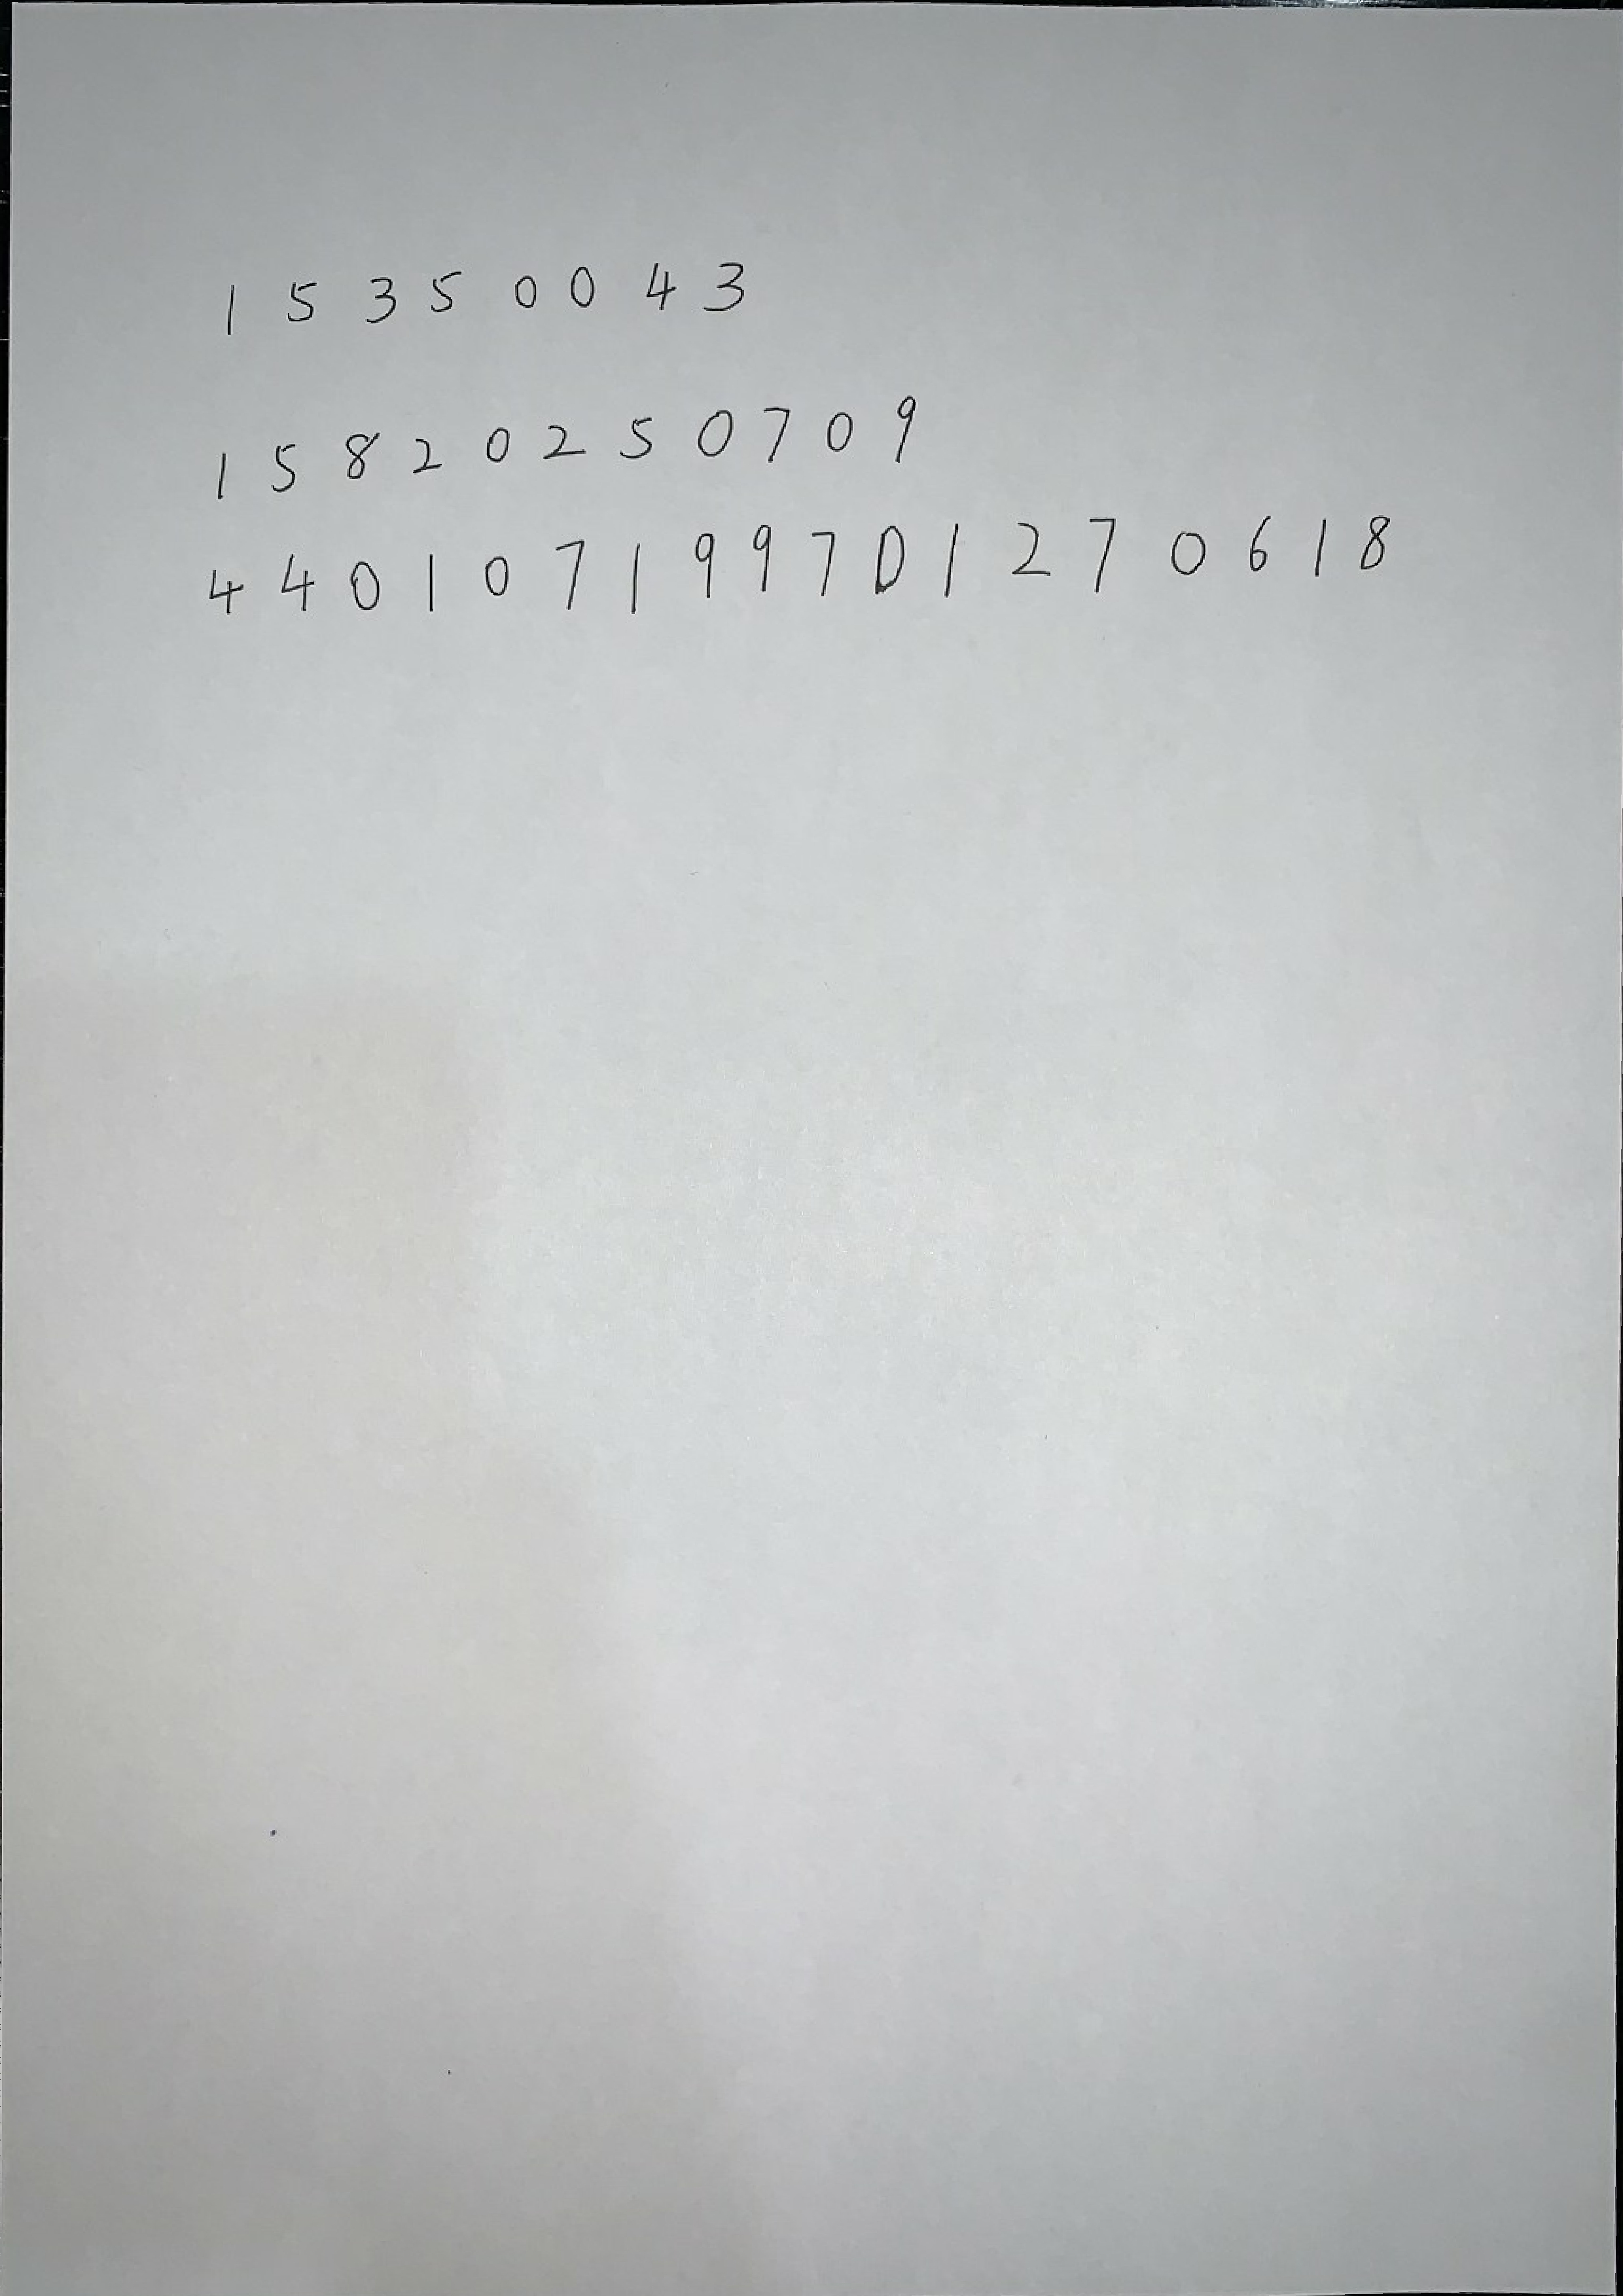 1 5 3 5 0 0 4 3
1 5 8 2 0 2 5 0 7 0 9
4 4 0 1 0 7 1 9 9 7 0 1 2 7 0 6 1 8